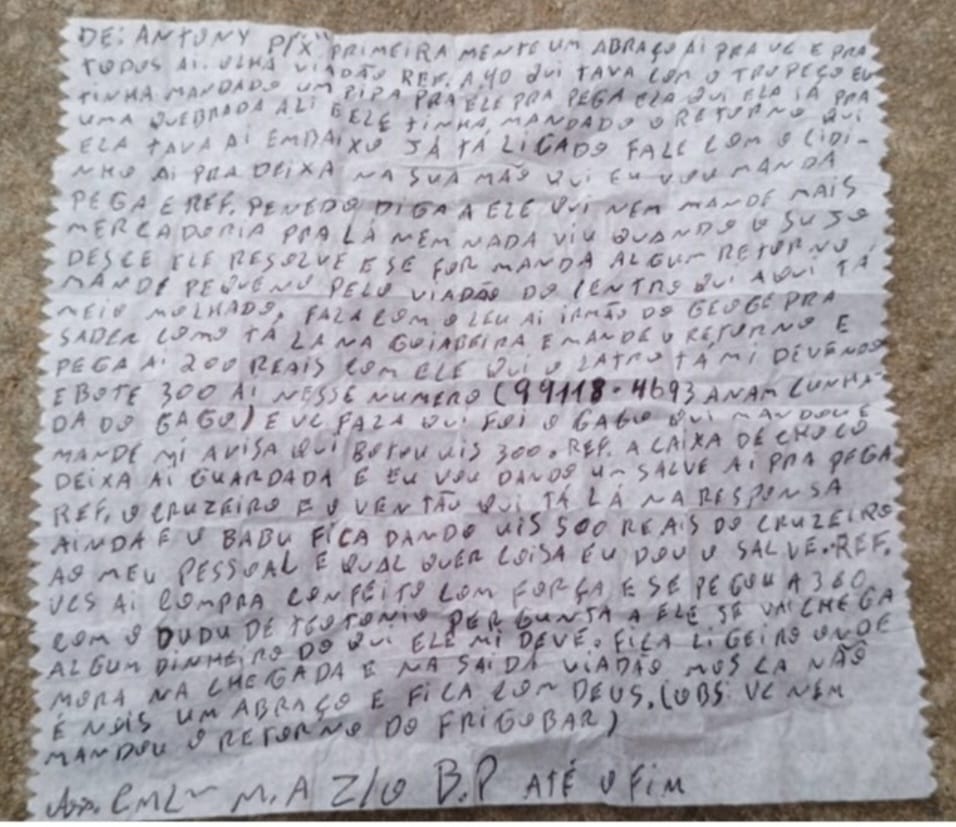 DE: ANTONY P/X" PRIMEIRA MENTE UM ABRAÇO AI PRA VC E PRA
TODOS AI. OLHA VIADÃO REF. A.40 QUI TAVA COM O TROPEÇO EU
TINHA MANDADO UM PIPA PRA ELE PRA PEGA ELA QUI ELA IA PRA
UMA QUEBRADA ALI E ELE TINHA MANDADO O RETORNO QUI
ELA TAVA AI EMBAIXO JÁ TÁ LIGADO FALE COM O CIDI-
NHO AI PRA DEIXA NA SUA MÃO QUI EU VOU MANDA
PEGA E REF. PENEDO DIGA A ELE QUI NEM MANDE MAIS
MERCADORIA PRA LÁ NEM NADA VIU QUANDO O SUJO
DESCE ELE RESOLVE E SE FOR MANDA ALGUM RETORNO
MANDE PEQUENO PELO VIADÃO DO CENTRO QUI AQUI TÁ
MEIO MOLHADO, FAZA COM O LEU AI IRMÃO DO GEOGE PRA
SABER COMO TÁ LA NA GOIABEIRA E MANDE O RETORNO E
PEGA AI 200 REAIS COM ELE QUI O LATRO TA MI DEVENDO
E BOTE 300 AI NESSE NUMERO (99118.4693 ANAM CUNHA-
DA DO GAGO) E VC FAZA QUI FOI O GAGO QUI MANDOU E
MANDE MI AVISA QUI BOTOU UIS 300. REF. A CAIXA DE CHOCO
DEIXA AI GUARDADA E EU VOU DANDO UM SALVE AI PRA PEGA
REF. O CRUZEIRO E O VENTÃO QUI TÁ LÁ NA RESPONSA
AINDA E O BABU FICA DANDO UIS 500 REAIS DO CRUZEIRO
AO MEU PESSOAL E QUAL QUER COISA EU DOU O SALVE. REF.
VCS AI COMPRA CONFEITO COM FORÇA E SE PEGOU A 360
COM O DUDU DE TEOTONIO PERGUNTA A ELE SE VAI CHEGA
ALGUM DINHEIRO DO QUI ELE MI DEVE. FICA LIGEIRO ONDE
MORA NA CHEGADA E NA SAIDA VIADÃO MOSCA NÃO
É NOIS UM ABRAÇO E FICA COM DEUS. (OBS: VC NEM
MANDOU O RETORNO DO FRIGOBAR)
Ass. M.A Z/O B.P ATÉ O FIM